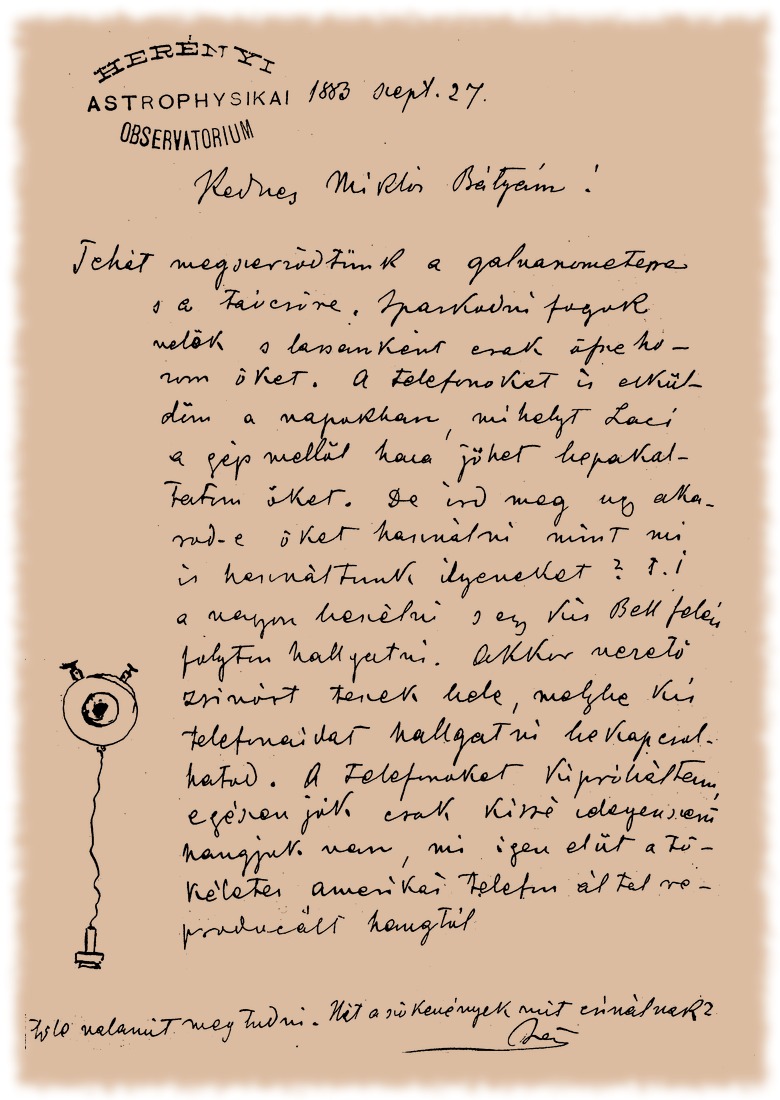 HERÉNYI
ASTROPHYSIKAI
OBSERVATORIUM
1883 sept. 27.
Kedves Miklós Bátyám!
Tehát megszerződtünk a galvanometerre
s a távcsőre. Iparkodni fogok
velök s lassanként csak össze ho-
zom őket. A telefonokat is elkül-
döm a napokban, mihelyt Laci
a gép mellől haza jöhet bepakol-
tatom őket. De ird meg ugy aka-
rod-e őket használni mint mi
is használtunk ilyeneket? t.i
a nagyon beszélni s egy kis Bell felén
folyton hallgatni. Akkor vezető
zsinórt teszek bele, melybe kis
telefonaidat hallgatni bekapcsol-
hatod. A telefonokat kipróbáltam,
egészen jók csak kissé idegenszerű
hangjuk van, mi igen elüt a tö-
kéletes amerikai telefon által re-
producált hangtól
tőle valamit megtudni. Hát a sökevények mit csinálnak?